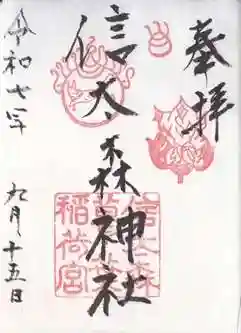 奉拝
信太森神社
令和七年 九月十五日
信太森
葛葉
稲荷宮